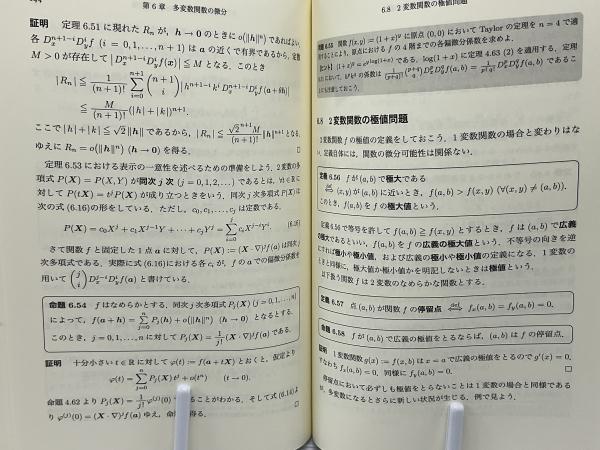 第 6 章 多変数関数の微分
証明 定理 6.51 に現れた Rₙ が, h → 0 のときに o(||h||ⁿ) であればよい.
各 Dₓⁿ⁺¹⁻ⁱDᵧⁱf (i = 0, 1, . . . , n + 1) は a の近くで有界であるから, 定数
M > 0 が存在して |Dₓⁿ⁺¹⁻ⁱDᵧⁱf(x)| ≦ M となる. このとき
|Rₙ| ≦ 1/(n+1)! Σᵢ₌₀ⁿ⁺¹ (n+1 i) |hⁿ⁺¹⁻ⁱkⁱDₓⁿ⁺¹⁻ⁱDᵧⁱf(a+θh)|
≦ M/(n+1)! (|h| + |k|)ⁿ⁺¹.
ここで |h| + |k| ≦ √2||h|| であるから, |Rₙ| ≦ √2ⁿ⁺¹M/(n+1)! ||h||ⁿ⁺¹ となる.
ゆえに Rₙ = o(||h||ⁿ) (h → 0) を得る. □
定理 6.53 における表示の一意性を述べるための準備をしよう. 2 変数の多
項式 P(X) = P(X, Y) が同次 j 次 (j = 0, 1, 2, . . .) であるとは, ∀t ∈ R に
対して P(tX) = tʲP(X) が成り立つときをいう. 同次 j 次多項式 P(X) は
次の式 (6.16) の形をしている. ただし, c₀, c₁, . . . , cⱼ は定数である.
P(X) = c₀Xʲ + c₁Xʲ⁻¹Y + · · · + cⱼYʲ = Σᵢ₌₀ʲ cᵢXʲ⁻ⁱYⁱ. (6.16)
さて関数 f と固定した 1 点 a に対して, P(X) := (X · ∇)ʲf(a) は同次 j
次多項式である. 実際に式 (6.16) における各 cᵢ が, f の a での偏微分係数を
用いて (j i) Dₓʲ⁻ⁱDᵧⁱf(a) と書けている.
命題 6.54 f はなめらかとする. 同次 j 次多項式 Pⱼ(X) (j = 0, 1, . . . , n)
によって, f(a + h) = Σⱼ₌₀ⁿ Pⱼ(h) + o(||h||ⁿ) (h → 0) となるとする.
このとき, j = 0, 1, . . . , n に対して, Pⱼ(X) = 1/j! (X · ∇)ʲf(a) である.
証明 十分小さい t ∈ R に対して φ(t) := f(a + tX) とおくと, 仮定より
φ(t) = Σⱼ₌₀ⁿ Pⱼ(X) tʲ + o(tⁿ) (t → 0).
命題 4.62 より Pⱼ(X) = 1/j! φ⁽ʲ⁾(0) ることがわかる. そして式 (6.14) よ
り φ⁽ʲ⁾(0) = (X · ∇)ʲf(a) ゆえ, 命 得る. □
6.8 2 変数関数の極値問題
問題 6.55 関数 f(x, y) = (1 + x)ʸ に原点 (0, 0) において Taylor の定理を n = 4 で適
用することにより, 原点における f の 4 階までの各偏微分係数を求めよ.
6.8 2 変数関数の極値問題
2 変数関数 f の極値の定義をしておこう. 1 変数関数の場合と変わりはな
い. 定義自体には, 関数の微分可能性は関係ない.
定義 6.56 f が (a, b) で極大である
(x, y) が (a, b) に近いとき, f(a, b) > f(x, y) (∀(x, y) ≠ (a, b)).
このとき, f(a, b) を f の極大値という.
定義 6.56 で等号を許して f(a, b) ≧ f(x, y) とするとき, f は (a, b) で広義
の極大であるといい, f(a, b) を f の広義の極大値という. 不等号の向きを逆
にすれば極小や極小値, および広義の極小や極小値の定義になる. 1 変数の
ときと同様に, 極大値か極小値かを明記しないときは極値という.
以下扱う関数 f は 2 変数のなめらかな関数とする.
定義 6.57 点 (a, b) が関数 f の停留点 def⇔ fₓ(a, b) = fᵧ(a, b) = 0.
命題 6.58 f が (a, b) で広義の極値をとるならば, (a, b) は f の停留点.
証明 1 変数関数 g(x) := f(x, b) は x = a で広義の極値をとるので g′(a) = 0.
すなわち fₓ(a, b) = 0. 同様に fᵧ(a, b) = 0. □
停留点において必ずしも極値をとらないことは 1 変数の場合と同様である
が, 多変数になるとさらに新しい状況が生じる. 例で見よう.